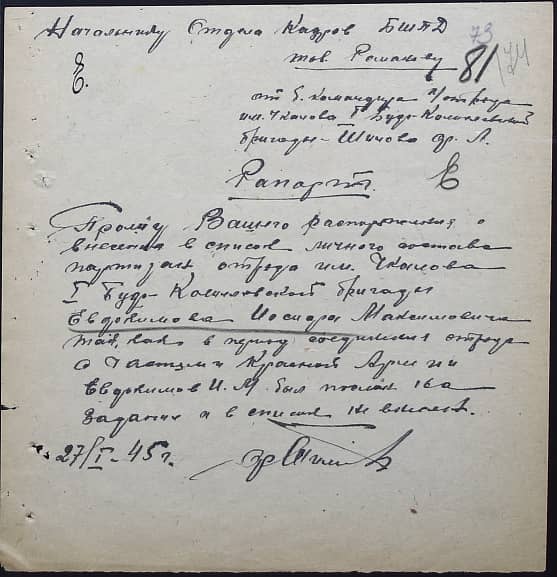 Начальнику Отдела Кадров БШПД
73
тов. Романову
81
74
Е.
от б. командира п/отряда
им. Чкалова I Буде-Кошелевской
бригады Шилова гр. Л.
Рапорт.
Е
Прошу Вашего распоряжения о
внесении в список личного состава
партизан отряда им. Чкалова
I Буде-Кошелевской бригады
Евдокимова Иосифа Максимовича
так, как в период соединения отряда
с частями Красной Армии
Евдокимов И. М был послан на
задание и в список не внесен.
27/I-45 г.